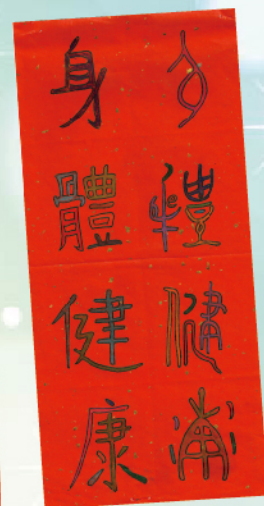 身體健康
身體健康